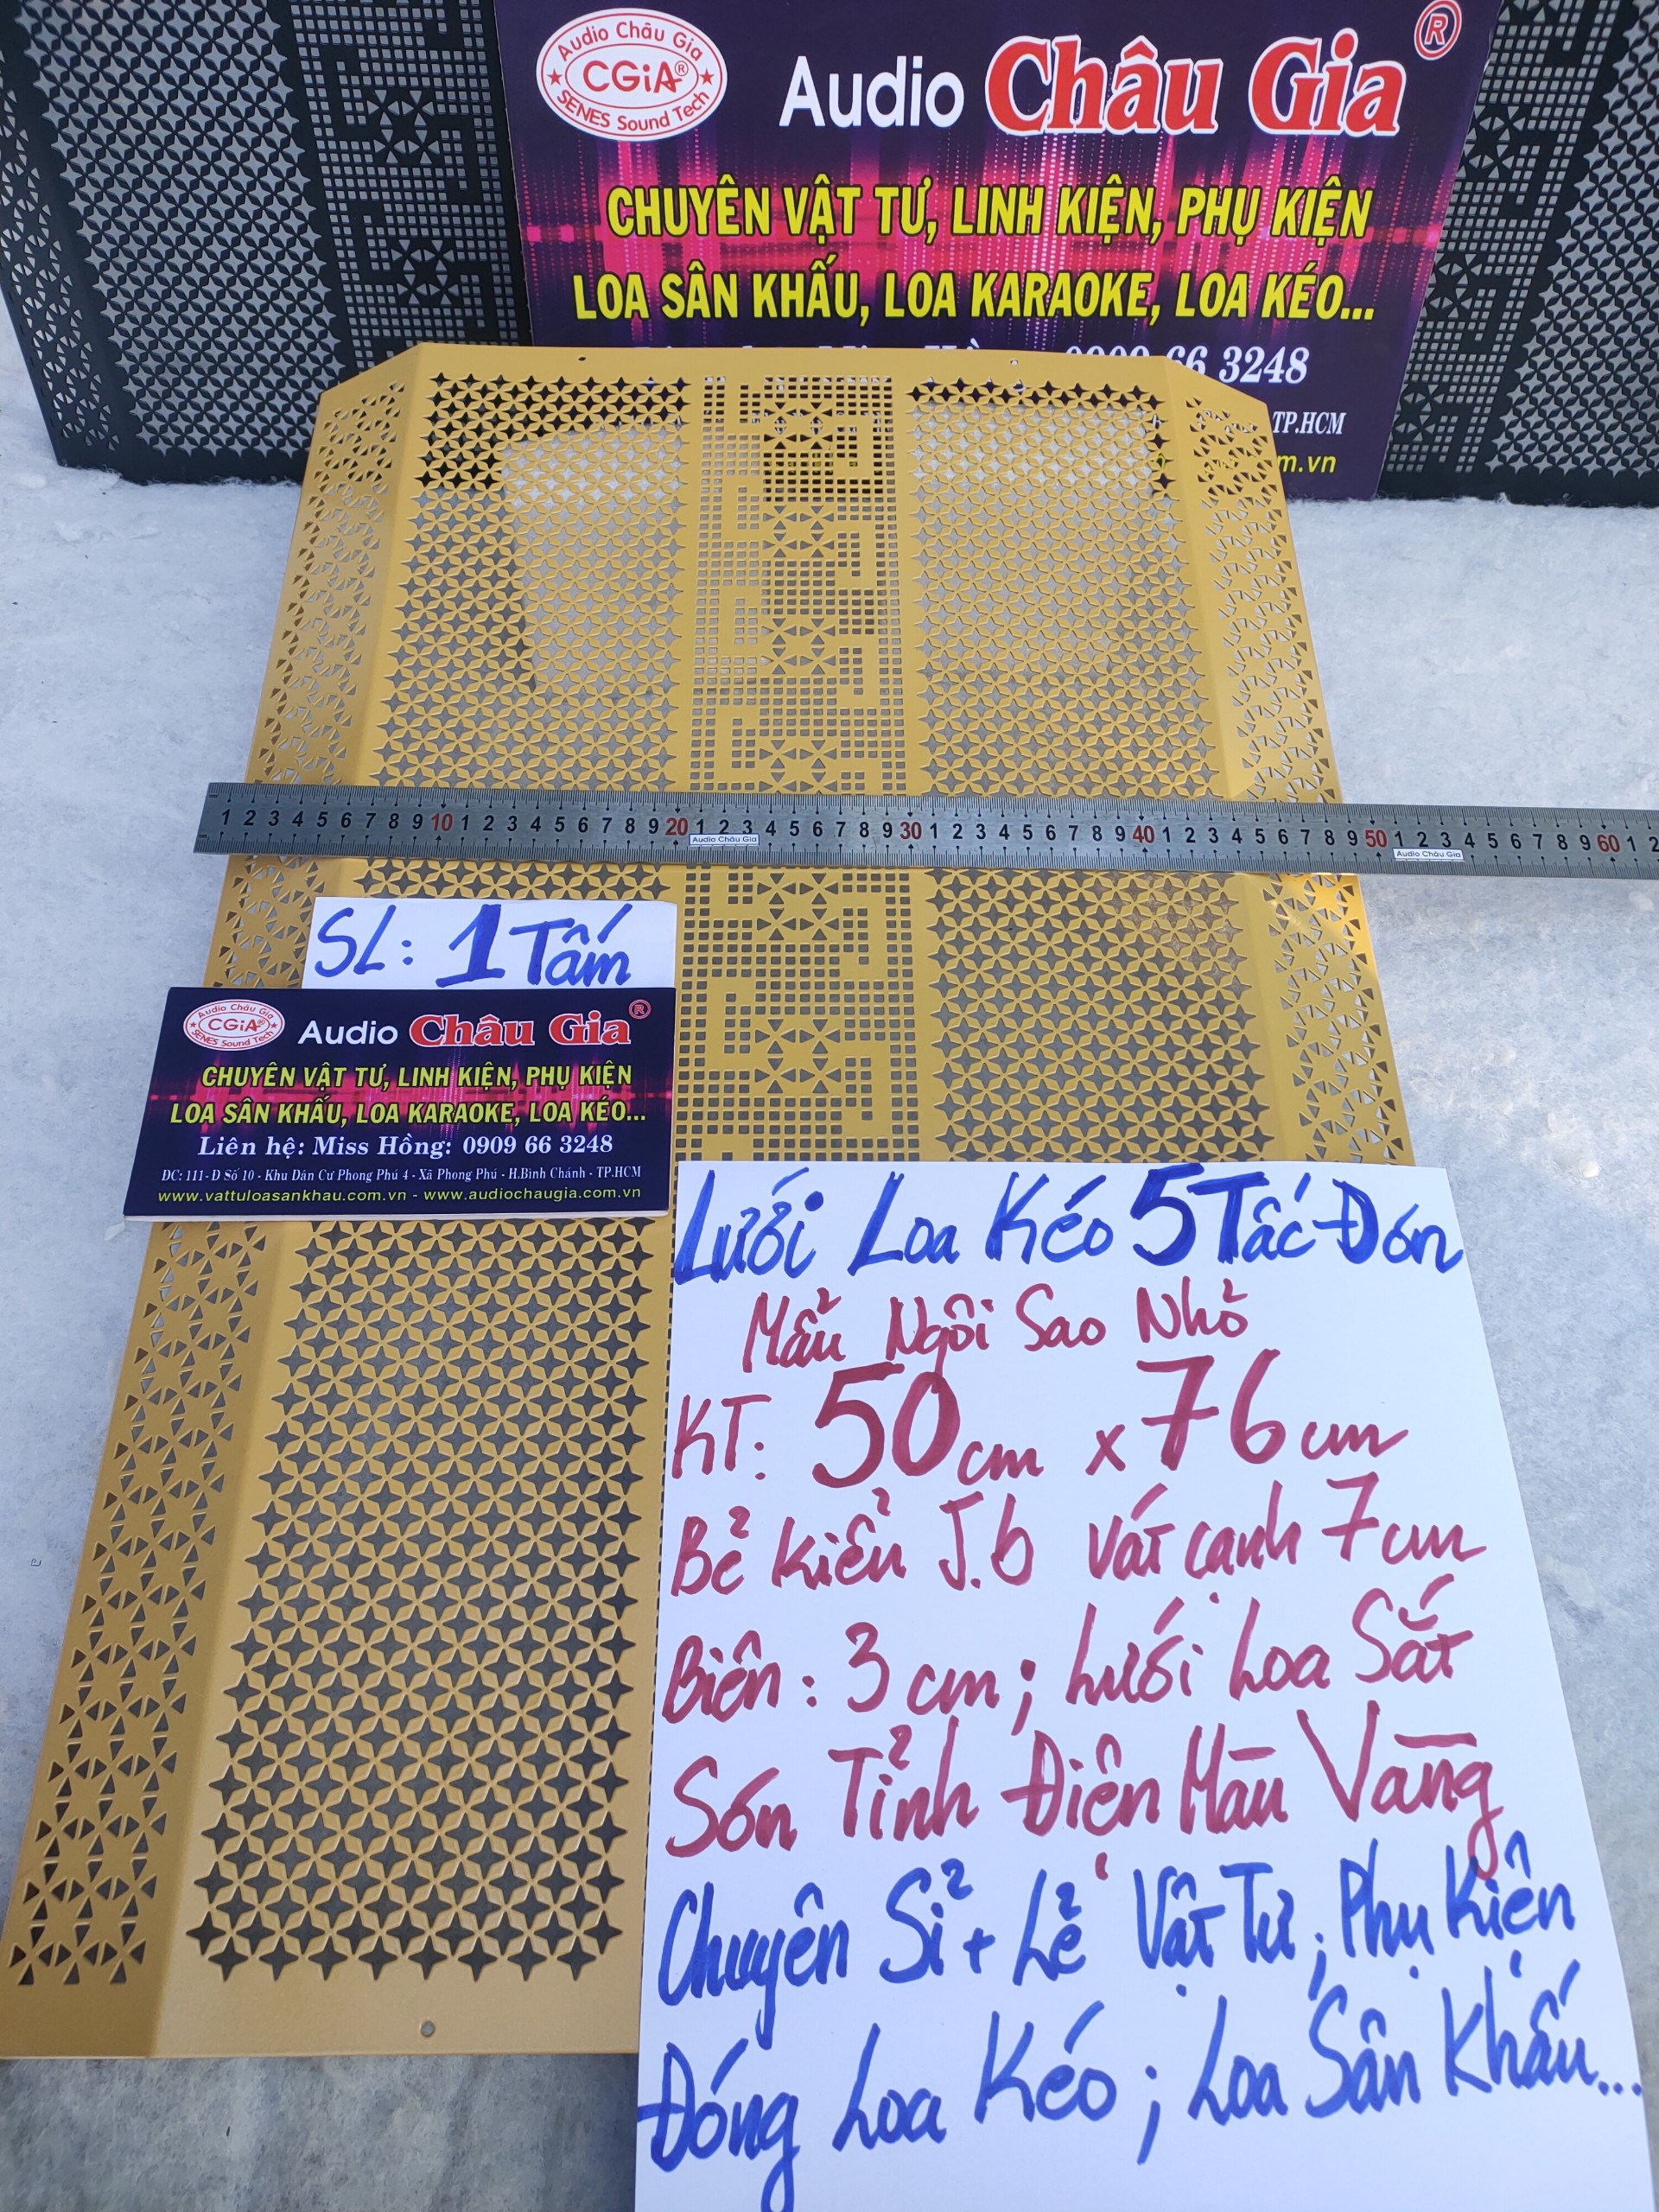 Audio Châu Gia
CGiA®
SENES Sound Tech
Audio Châu Gia ®
CHUYÊN VẬT TƯ, LINH KIỆN, PHỤ KIỆN
LOA SÂN KHẤU, LOA KARAOKE, LOA KÉO...
66 3248
TP.HCM
m.vn
1 2 3 4 5 6 7 8 9 10 1 2 3 4 5 6 7 8 9 20 1 2 3 4 5 6 7 8 9 30 1 2 3 4 5 6 7 8 9 40 1 2 3 4 5 6 7 8 9 50 1 2 3 4 5 6 7 8 9 60 1 2
Audio Châu Gia
Audio Châu Gia
SL: 1 Tấm
Audio Châu Gia
CGiA®
SENES Sound Tech
Audio Châu Gia ®
CHUYÊN VẬT TƯ, LINH KIỆN, PHỤ KIỆN
LOA SÂN KHẤU, LOA KARAOKE, LOA KÉO...
Liên hệ: Miss Hồng: 0909 66 3248
ĐC: 111-Đ Số 10 - Khu Dân Cư Phong Phú 4 - Xã Phong Phú - H.Bình Chánh - TP.HCM
www.vattuloasankhau.com.vn - www.audiochaugia.com.vn
Lưới Loa Kéo 5 Tấc Đơn
Mẫu Ngôi Sao Nhỏ
KT: 50cm x 76cm
Bẻ Kiểu J.b Vát cạnh 7cm
Biên: 3cm; Lưới Loa Sắt
Sơn Tỉnh Điện Màu Vàng
Chuyên Sỉ + Lẻ Vật Tư; Phụ Kiện
Đóng Loa Kéo; Loa Sân Khấu...